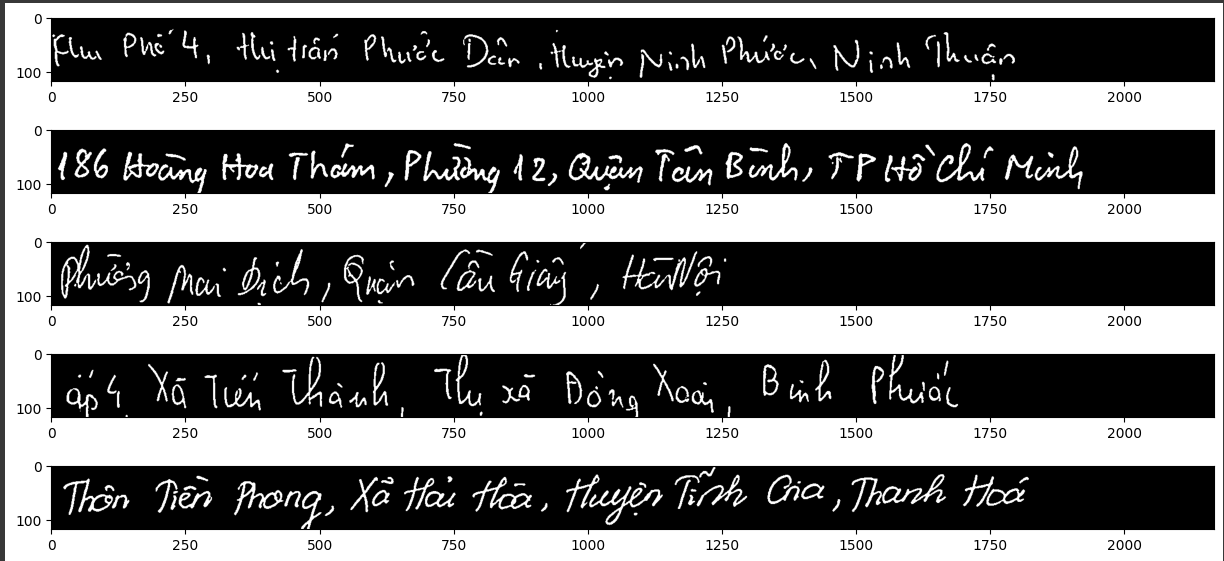 0
100
Khu Phố 4, thị trấn Phước Dân, Huyện Ninh Phước, Ninh Thuận
0 250 500 750 1000 1250 1500 1750 2000
0
100
186 Hoàng Hoa Thám, Phường 12, Quận Tân Bình, TP Hồ Chí Minh
0 250 500 750 1000 1250 1500 1750 2000
0
100
Phường Mai Dịch, Quận Cầu Giấy, Hà Nội
0 250 500 750 1000 1250 1500 1750 2000
0
100
ấp 4, Xã Tiến Thành, Thị xã Đồng Xoài, Bình Phước
0 250 500 750 1000 1250 1500 1750 2000
0
100
Thôn Tiền Phong, Xã Hải Hòa, Huyện Tĩnh Gia, Thanh Hoá
0 250 500 750 1000 1250 1500 1750 2000